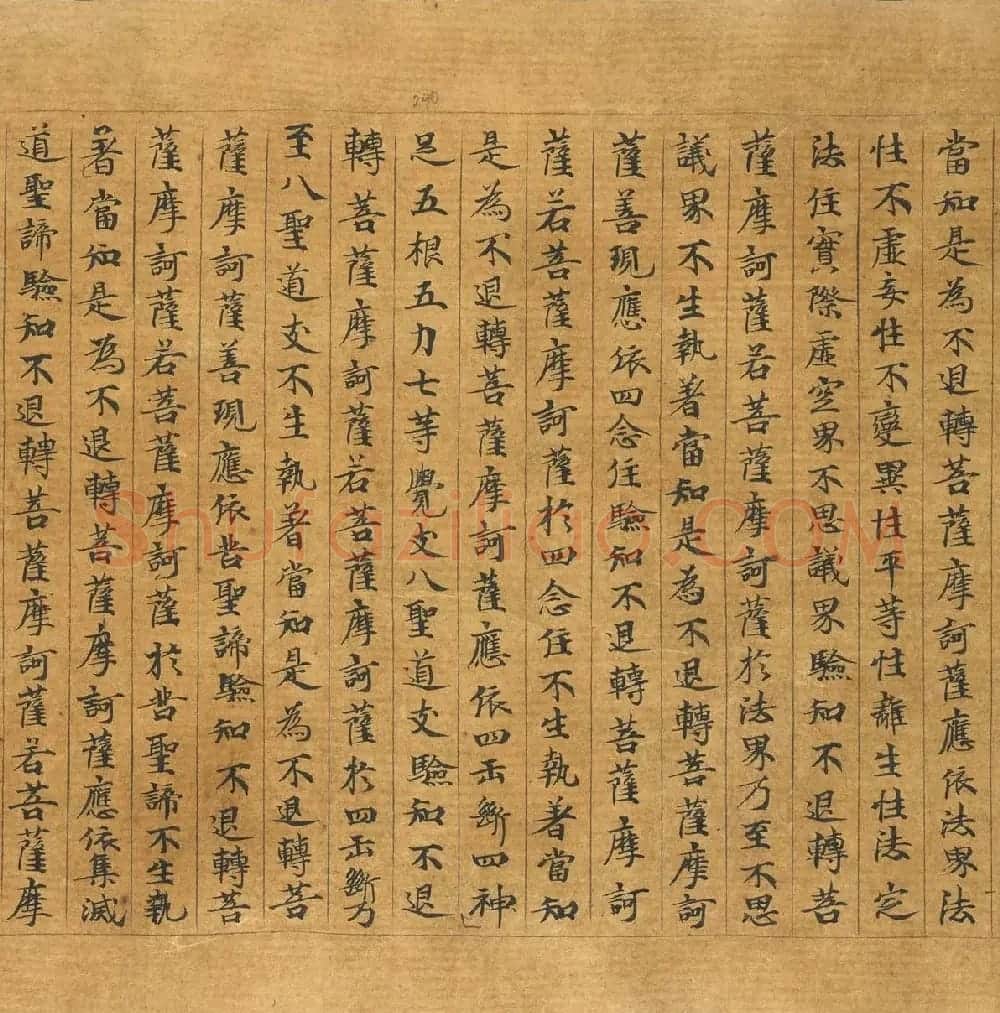 當知是為不退轉菩薩摩訶薩應依法界法
性不虛妄性不變異性平等性離生性法定
法住實際虛空界不思議界驗知不退轉菩
薩摩訶薩若菩薩摩訶薩於法界乃至不思
議界不生執著當知是為不退轉菩薩摩訶
薩善現應依四念住驗知不退轉菩薩摩訶
薩若菩薩摩訶薩於四念住不生執著當知
是為不退轉菩薩摩訶薩應依四正斷四神
足五根五力七等覺支八聖道支驗知不退
轉菩薩摩訶薩若菩薩摩訶薩於四正斷乃
至八聖道支不生執著當知是為不退轉菩
薩摩訶薩善現應依苦聖諦驗知不退轉菩
薩摩訶薩若菩薩摩訶薩於苦聖諦不生執
著當知是為不退轉菩薩摩訶薩應依集滅
道聖諦驗知不退轉菩薩摩訶薩若菩薩摩
Shufaziliao.COM